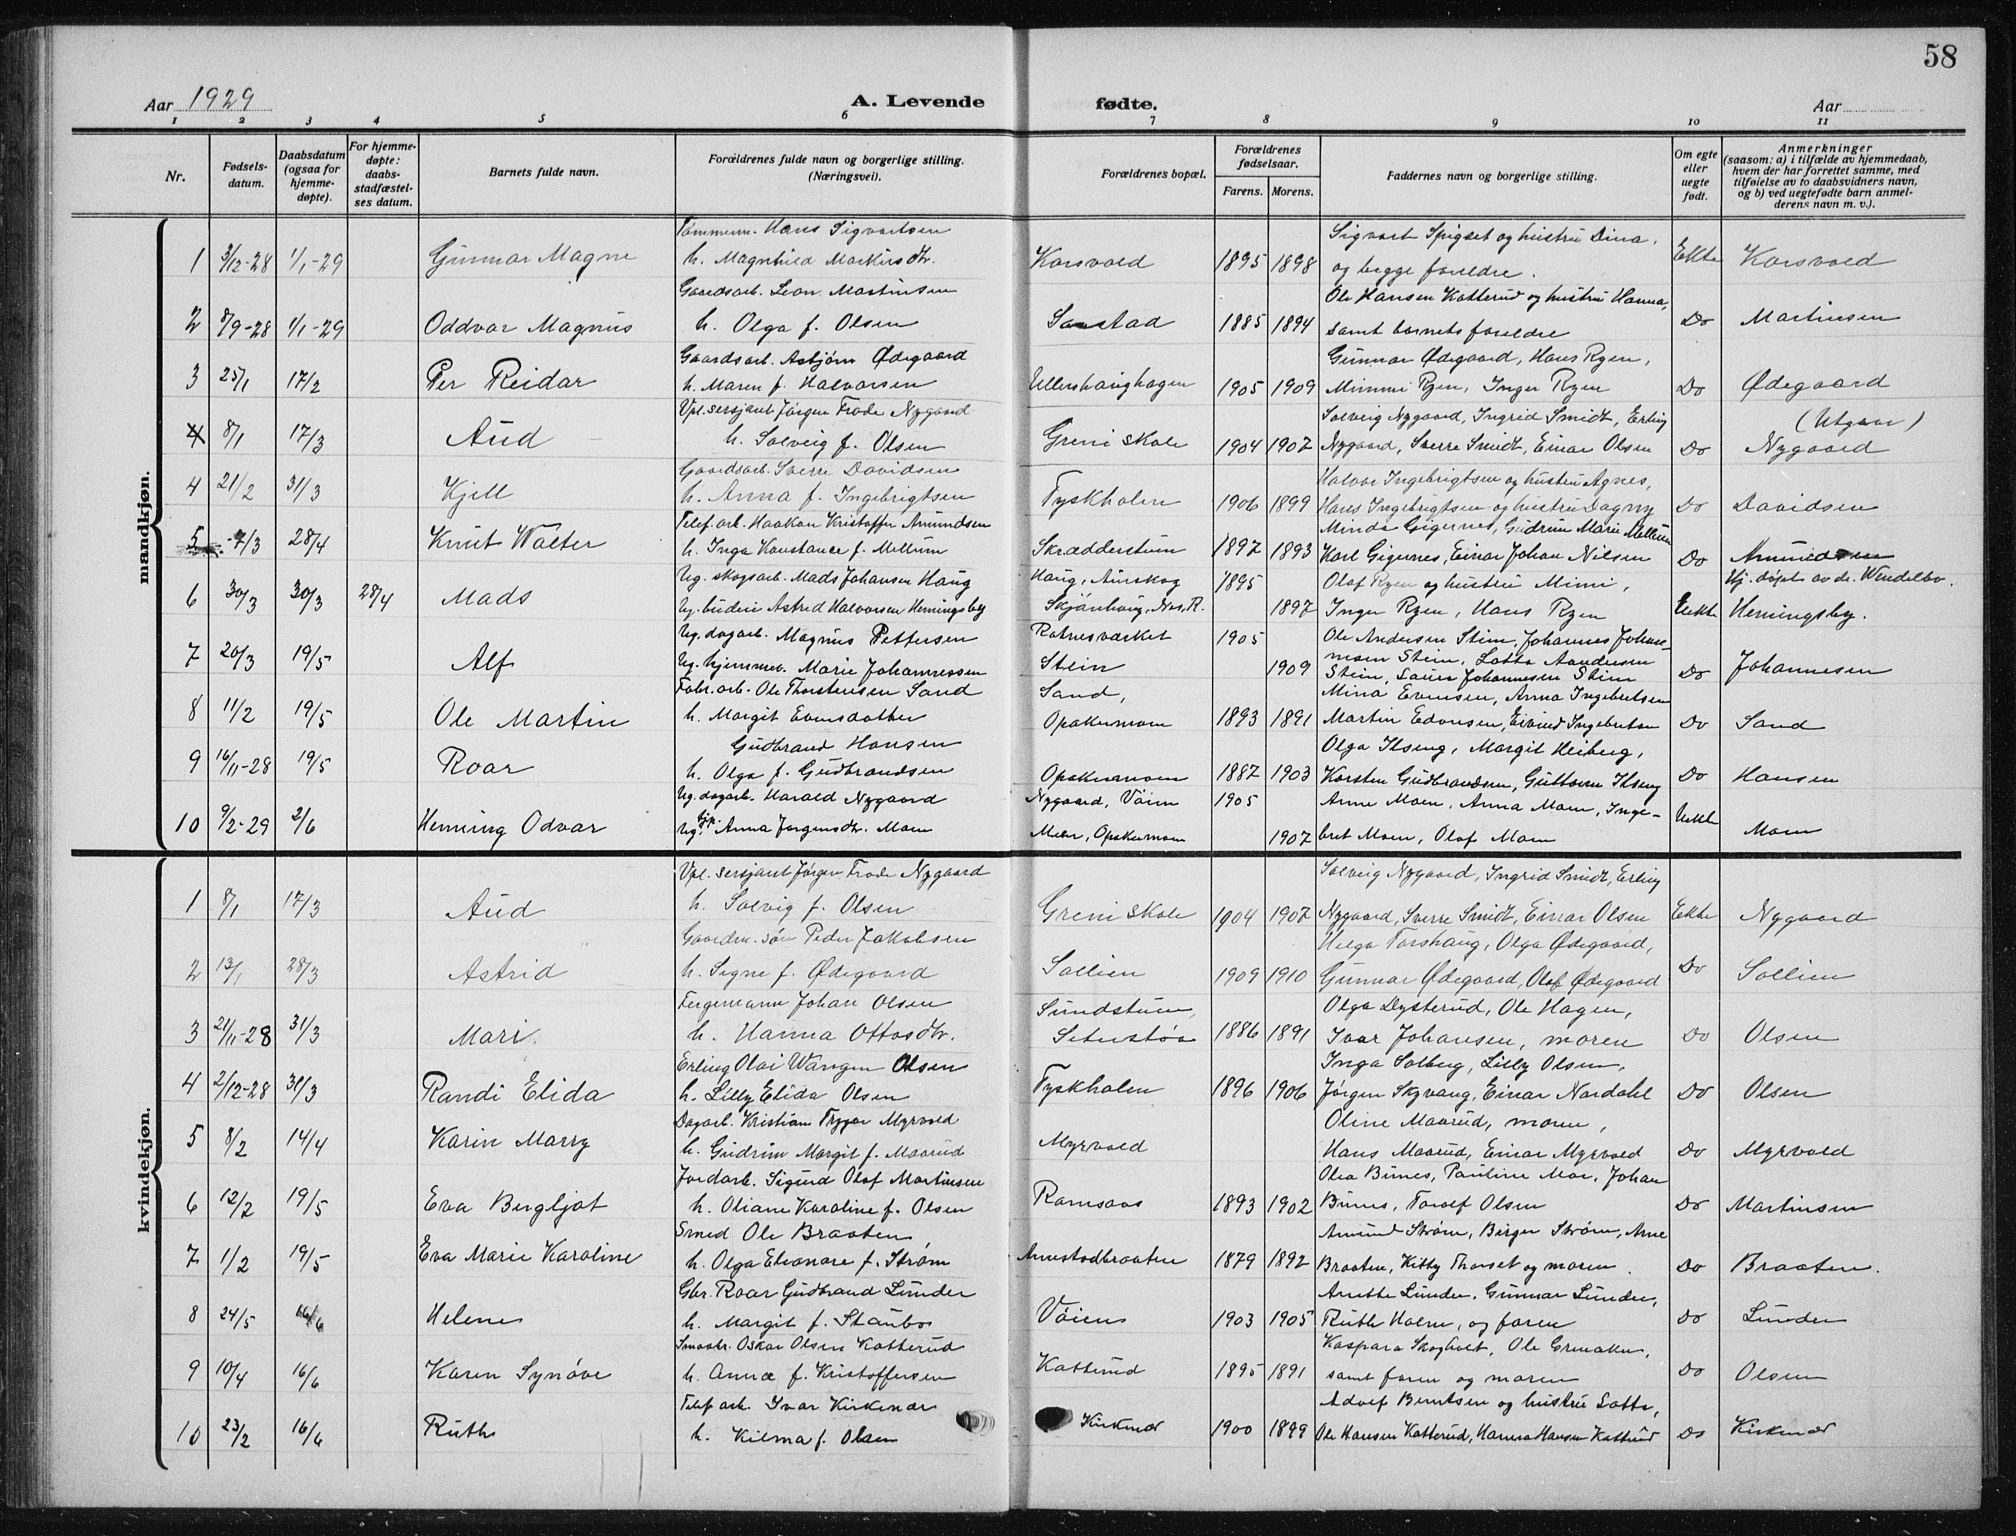 58
Aar 1929
A. Levende
fødte.
Aar
1 2 3 4 5 6 7 8 9 10 11
Nr.
Fødsels-
datum.
Daabsdatum
(ogsaa for
hjemme-
døpte).
For hjemme-
døpte:
daabs-
stadfæstel-
ses datum.
Barnets fulde navn.
Forældrenes fulde navn og borgerlige stilling.
(Næringsvei).
Forældrenes bopæl.
Forældrenes
fødselsaar.
Farens. Morens.
Faddernes navn og borgerlige stilling.
Om egte
eller
uegte
født.
Anmerkninger
(saasom: a) i tilfælde av hjemmedaab,
hvem der har forrettet samme, med
tilføielse av to daabsvidners navn,
og b) ved uegtefødte barn anmel-
derens navn m. v.).
mandkjøn.
Tømmerm. Hans Sigvartsen Sigvart Spigset og hustru Dina,
1 3/12-28 1/1-29 Gunnar Magne h. Magnhild Markusdtr. Korsvold 1895 1898 og begge foreldre. Ekte Korsvold
Gaardsarb. Leon Martinsen Ole Hansen Katterud og hustru Hanna,
2 8/9-28 1/1-29 Oddvar Magnus h. Olga f. Olsen 1885 1894 samt barnets foreldre Do Martinsen
Gaardsarb. Asbjørn Ødegaard Gunnar Ødegaard, Hans Ryen,
3 25/1 17/2 Per Reidar h. Maren f. Halvorsen Ullershaughagen 1905 1909 Mimmi Ryen, Inger Ryen Do Ødegaard
Vpl. sersjant Jørgen Frode Nygaard Solveig Nygaard, Ingrid Smidt, Erling (Utgaar)
4 8/1 17/3 Aud h. Solveig f. Olsen Greni skole 1904 1907 Nygaard, Sverre Smidt, Einar Olsen Do Nygaard
Gaardsarb. Sverre Davidsen Halvor Ingebrigtsen og hustru Agnes,
4 21/2 31/3 Kjell h. Anna f. Ingebrigtsen Tyskholen 1906 1899 Hans Ingebrigtsen og hustru Dagny Do Davidsen
Telef. arb. Haakon Kristoffer Amundsen Minda Gigernes, Gudrun Marie Mellum
5 7/3 28/4 Knut Walter h. Inga Konstance f. Mellum Skrædderstun 1897 1893 Karl Gigernes, Einar Johan Nilsen Do Amundsen
Ug. skogsarb. Mads Johansen Haug Haug, Aurskog 1895 Olaf Ryen og hustru Mimi, Hj. døpt av dr. Wendelbo.
6 30/3 30/3 28/4 Mads Ug. budeie Astrid Halvorsen Hemingsby Skjønhaug, Nes, R. 1897 Inger Ryen, Hans Ryen Uekte Hemingsby.
Ug. dagarb. Magnus Pettersen Rotnesværket 1905 Ole Andersen Stein, Johannes Johan-
7 20/3 19/5 Alf Ug. hjemmev. Marie Johannessen Stein 1909 nesen Stein, Lotta Aandersen Do Johannesen
Stein, Laura Johannesen Stein
Fabr. arb. Ole Thorstensen Sand Sand, Mina Evensen, Anna Ingebretsen
8 11/2 19/5 Ole Martin h. Margit Evensdatter Opakermoen 1893 1891 Martin Edvinsen, Eivind Ingebretsen Do Sand
Gudbrand Hansen Olga Ilseng, Margit Heiberg,
9 16/11-28 19/5 Roar h. Olga f. Gudbrandsen Opakermoen 1887 1903 Karsten Gudbrandsen, Guttorm Ilseng Do Hansen
Ug. dagarb. Harald Nygaard Nygaard, Vøien 1905 Anne Moen, Anna Moen, Inge-
10 9/2-29 2/6 Henning Odvar Ug. Anna Jørgensdtr. Moen Moen, Opakermoen 1907 bret Moen, Olaf Moen Uekte Moen
kvindekjøn.
Vpl. sersjant Jørgen Frode Nygaard Solveig Nygaard, Ingrid Smidt, Erling
1 8/1 17/3 Aud h. Solvig f. Olsen Greni skole 1904 1907 Nygaard, Sverre Smidt, Einar Olsen Ekte Nygaard
Gaardm. søn Peder Jakobsen Helga Torshaug, Olga Ødegaard,
2 13/1 28/3 Astrid h. Signe f. Ødegaard Sollien 1909 1910 Gunnar Ødegaard, Olaf Ødegaard Do Sollien
Fergemann Johan Olsen Sundstuen, Olga Dysterud, Ole Hagen,
3 21/11-28 31/3 Mari h. Hanna Ottosdtr. Seterstøa 1886 1891 Ivar Johansen, moren Do Olsen
Erling Olai Wangen Olsen Inga Solberg, Lilly Olsen,
4 2/12-28 31/3 Randi Elida h. Lilly Elida Olsen Tyskholen 1896 1906 Jørgen Skyvang, Einar Nordahl Do Olsen
Dagarb. Kristian Trygve Myrvold Oline Maarud, moren,
5 8/2 14/4 Karin Marry h. Gudrun Margit f. Maarud Myrvold Hans Maarud, Einar Myrvold Do Myrvold
Jordarb. Sigurd Olaf Martinsen Olea Bunes, Pauline Moe, Johan
6 12/2 19/5 Eva Bergljot h. Oliane Karoline f. Olsen Ramsaas 1893 1902 Bunes, Toralf Olsen Do Martinsen
Smed Ole Braaten Amund Strøm, Birger Strøm, Arne
7 1/2 19/5 Eva Marie Karoline h. Olga Eleonore f. Strøm Annestadbraaten 1879 1892 Braaten, Kitty Thorset og moren. Do Braaten.
Gbr. Roar Gudbrand Lunder Anette Lunder, Gunnar Lunder,
8 24/5 16/6 Helene h. Margit f. Staubo Vøien 1903 1905 Ruth Holm, og faren Do Lunder
Smaabr. Oskar Olsen Katterud Kaspara Skogholt, Ole Grenaker,
9 10/4 16/6 Karen Synøve h. Anna f. Kristoffersen Katterud 1895 1891 samt faren og moren Do Olsen
Telef. arb. Ivar Kirkenær Adolf Berntsen og hustru Lotta,
10 23/2 16/6 Ruth h. Hilma f. Olsen Kirkenær 1900 1899 Ole Hansen Katterud, Hanna Hansen Katterud Do Kirkenær